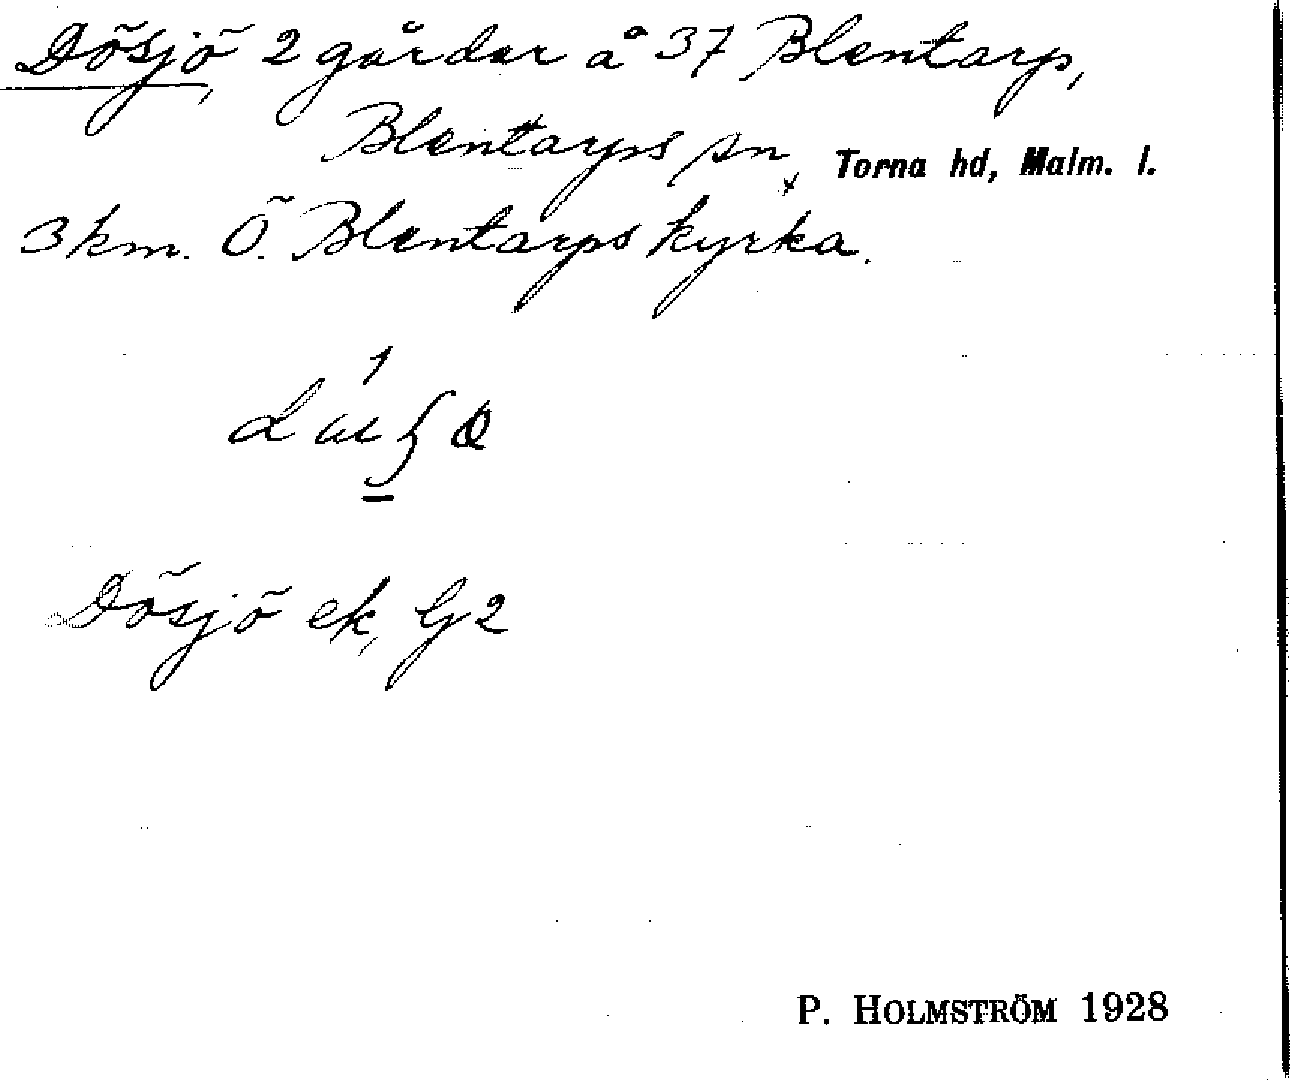 Dösjö, 2 gårdar å 37 Blentarp,
Blentarps sn, Torna hd, Malm. l.
3 km. Ö. Blentarps kyrka.
Dösjö ek, G2
P. HOLMSTRÖM 1928